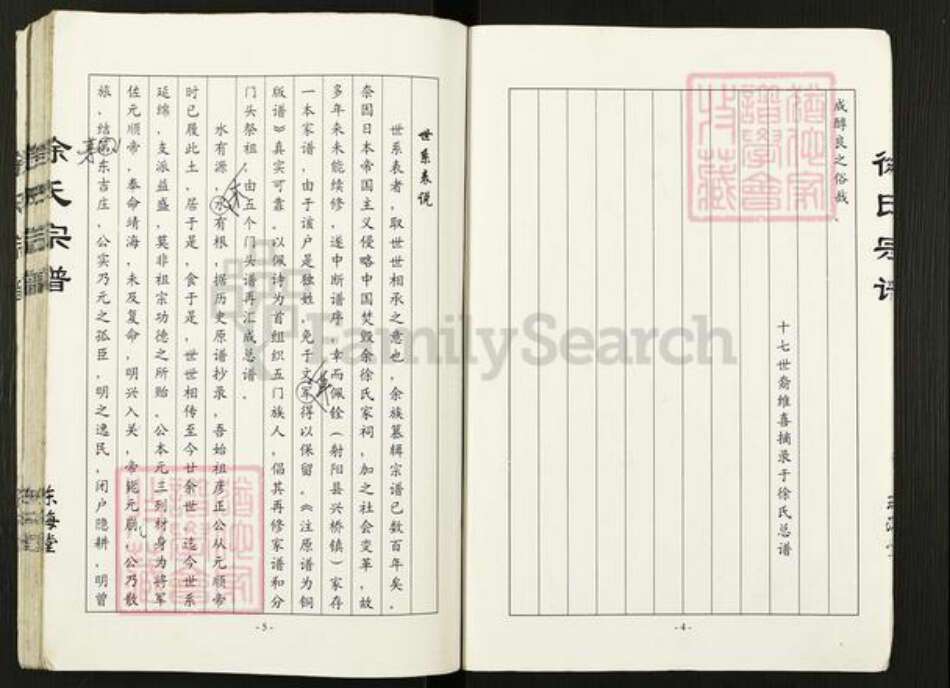 成醇良之俗哉．
十七世裔维喜摘录于徐氏总谱
-4-
徐氏宗谱
世系表说
世系表者，取世世相承之意也，余族纂辑宗谱已数百年矣．
奈因日本帝国主义侵略中国焚毁余徐氏家祠，加之社会变革，故
多年来未能续修，遂中断谱序，幸而佩铨（射阳县兴桥镇）家存
一本家谱，由于该户是独姓，免于文军得以保留．《注原谱为铜
版谱》真实可靠．以佩诗为首组织五门族人，倡其再修家谱和分
门头祭祖，由五个门头谱再汇成总谱．
水有源，水有根，据历史原谱抄录，吾始祖彦正公从元顺帝
时已履此土，居于是，食于是，世世相传至今廿余世，迄今世系
延绵，支派益盛，莫非祖宗功德之所贻．公本元三列材身为将军
佐元顺帝，奉命靖海，未及复命，明兴入关，帝毙元崩，公乃散
旅，结 东吉庄，公实乃元之孤臣，明之逸民，闭户隐耕，明曾
-5-
东海堂
FamilySearch